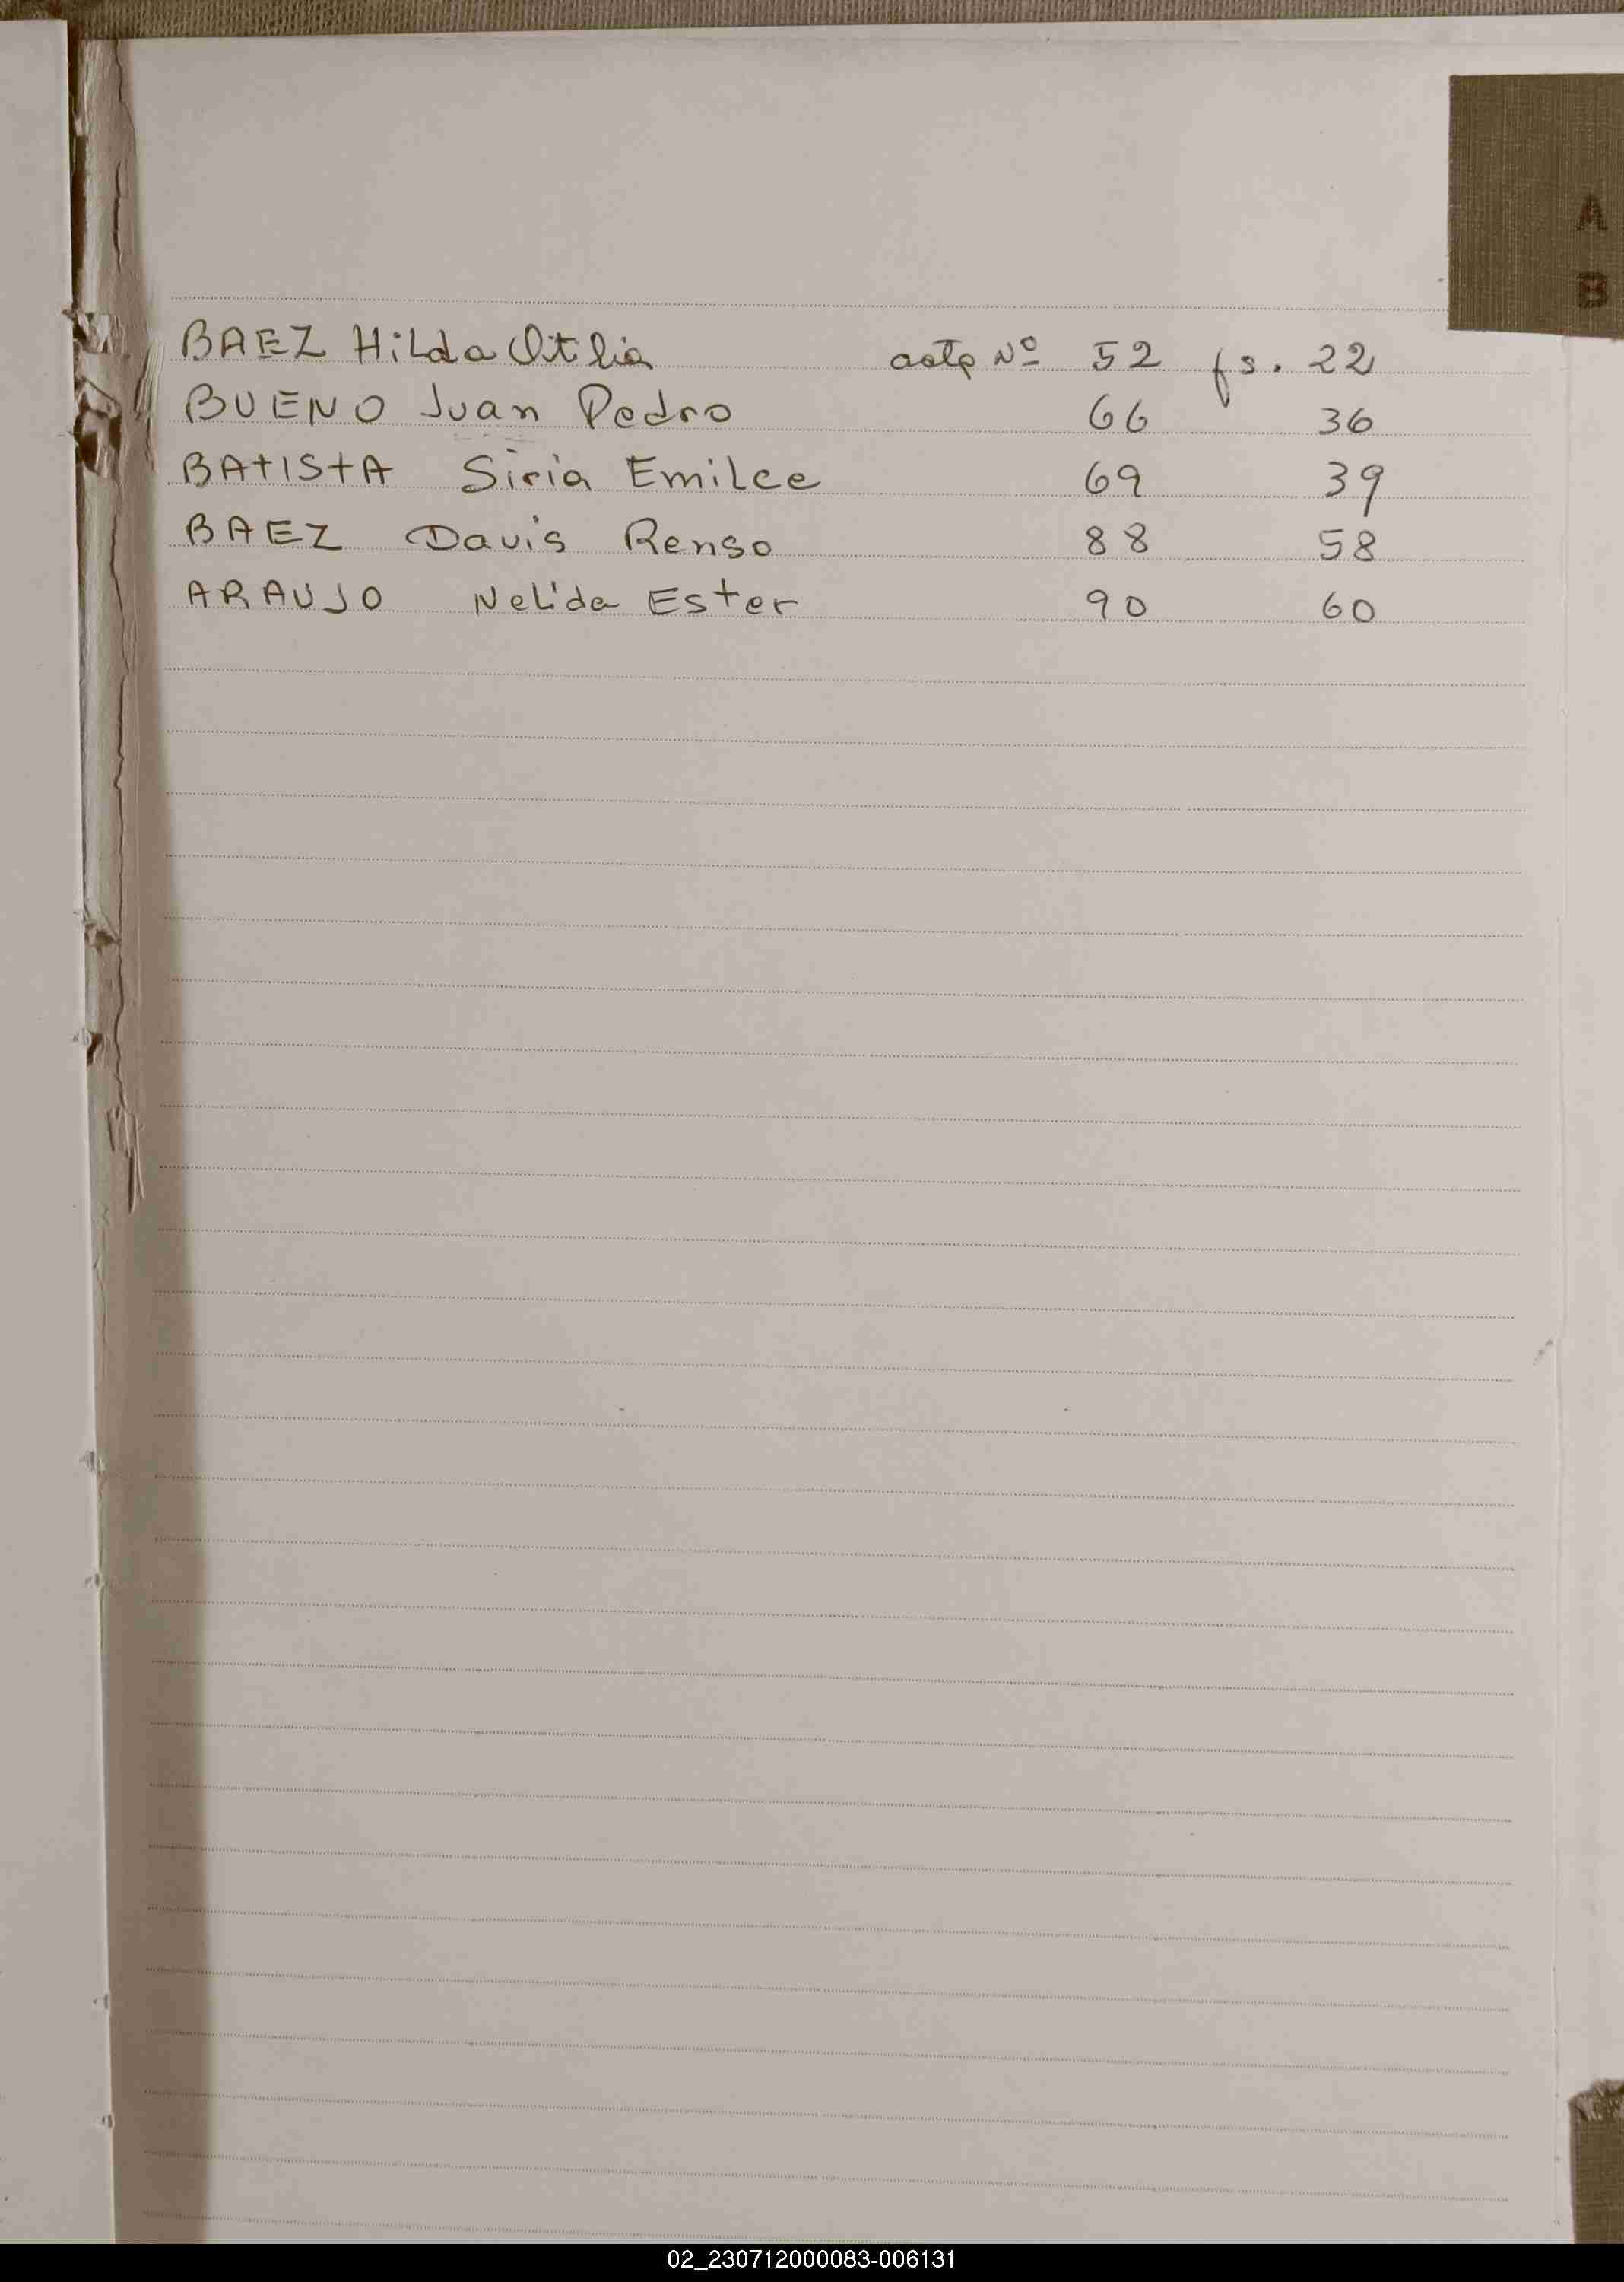 A
B
BAEZ Hilda Otilia acta Nº 52 fs. 22
BUENO Juan Pedro 66 36
BATISTA Siria Emilce 69 39
BAEZ Davis Renso 88 58
ARAUJO Nelida Ester 90 60
02_230712000083-006131